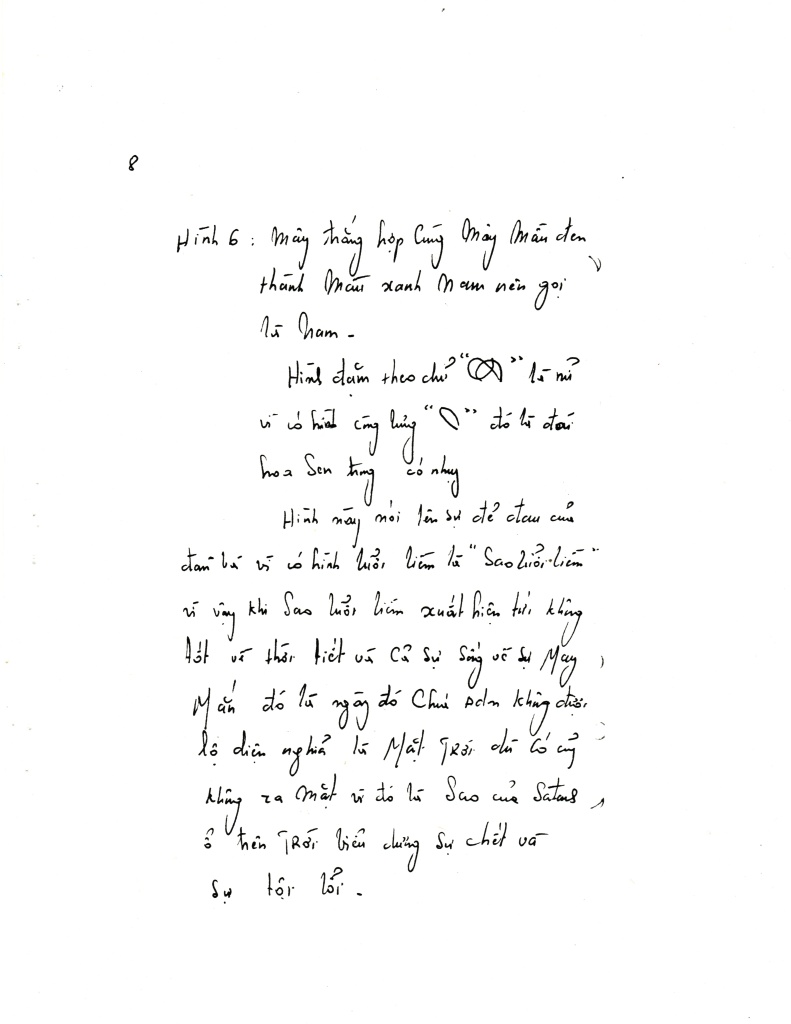 8
Hình 6 : Mây trắng hợp Cùng Mây Mầu đen
thành Mầu xanh Nam nên gọi
là Nam -
Hình đặm theo chử " " là nử
vì có hình công lủng " " đó là đoá
hoa Sen trong có nhụy
Hình nầy nói lên sự đẻ đau của
đàn bà vì có hình lưởi liềm là "Sao lưởi liềm"
vì vậy khi Sao lưởi liềm xuất hiện tức không
tốt về thời tiết và Cả Sự Sống về Sự May
Mắn đó là ngày đó Chúa không được
lộ diện nghỉả là Mặt TRời dù Có củng
không ra Mặt vì đó là Sao của Satans
ổ trên TRời biểu dương Sự chết và
Sự tội lổi -